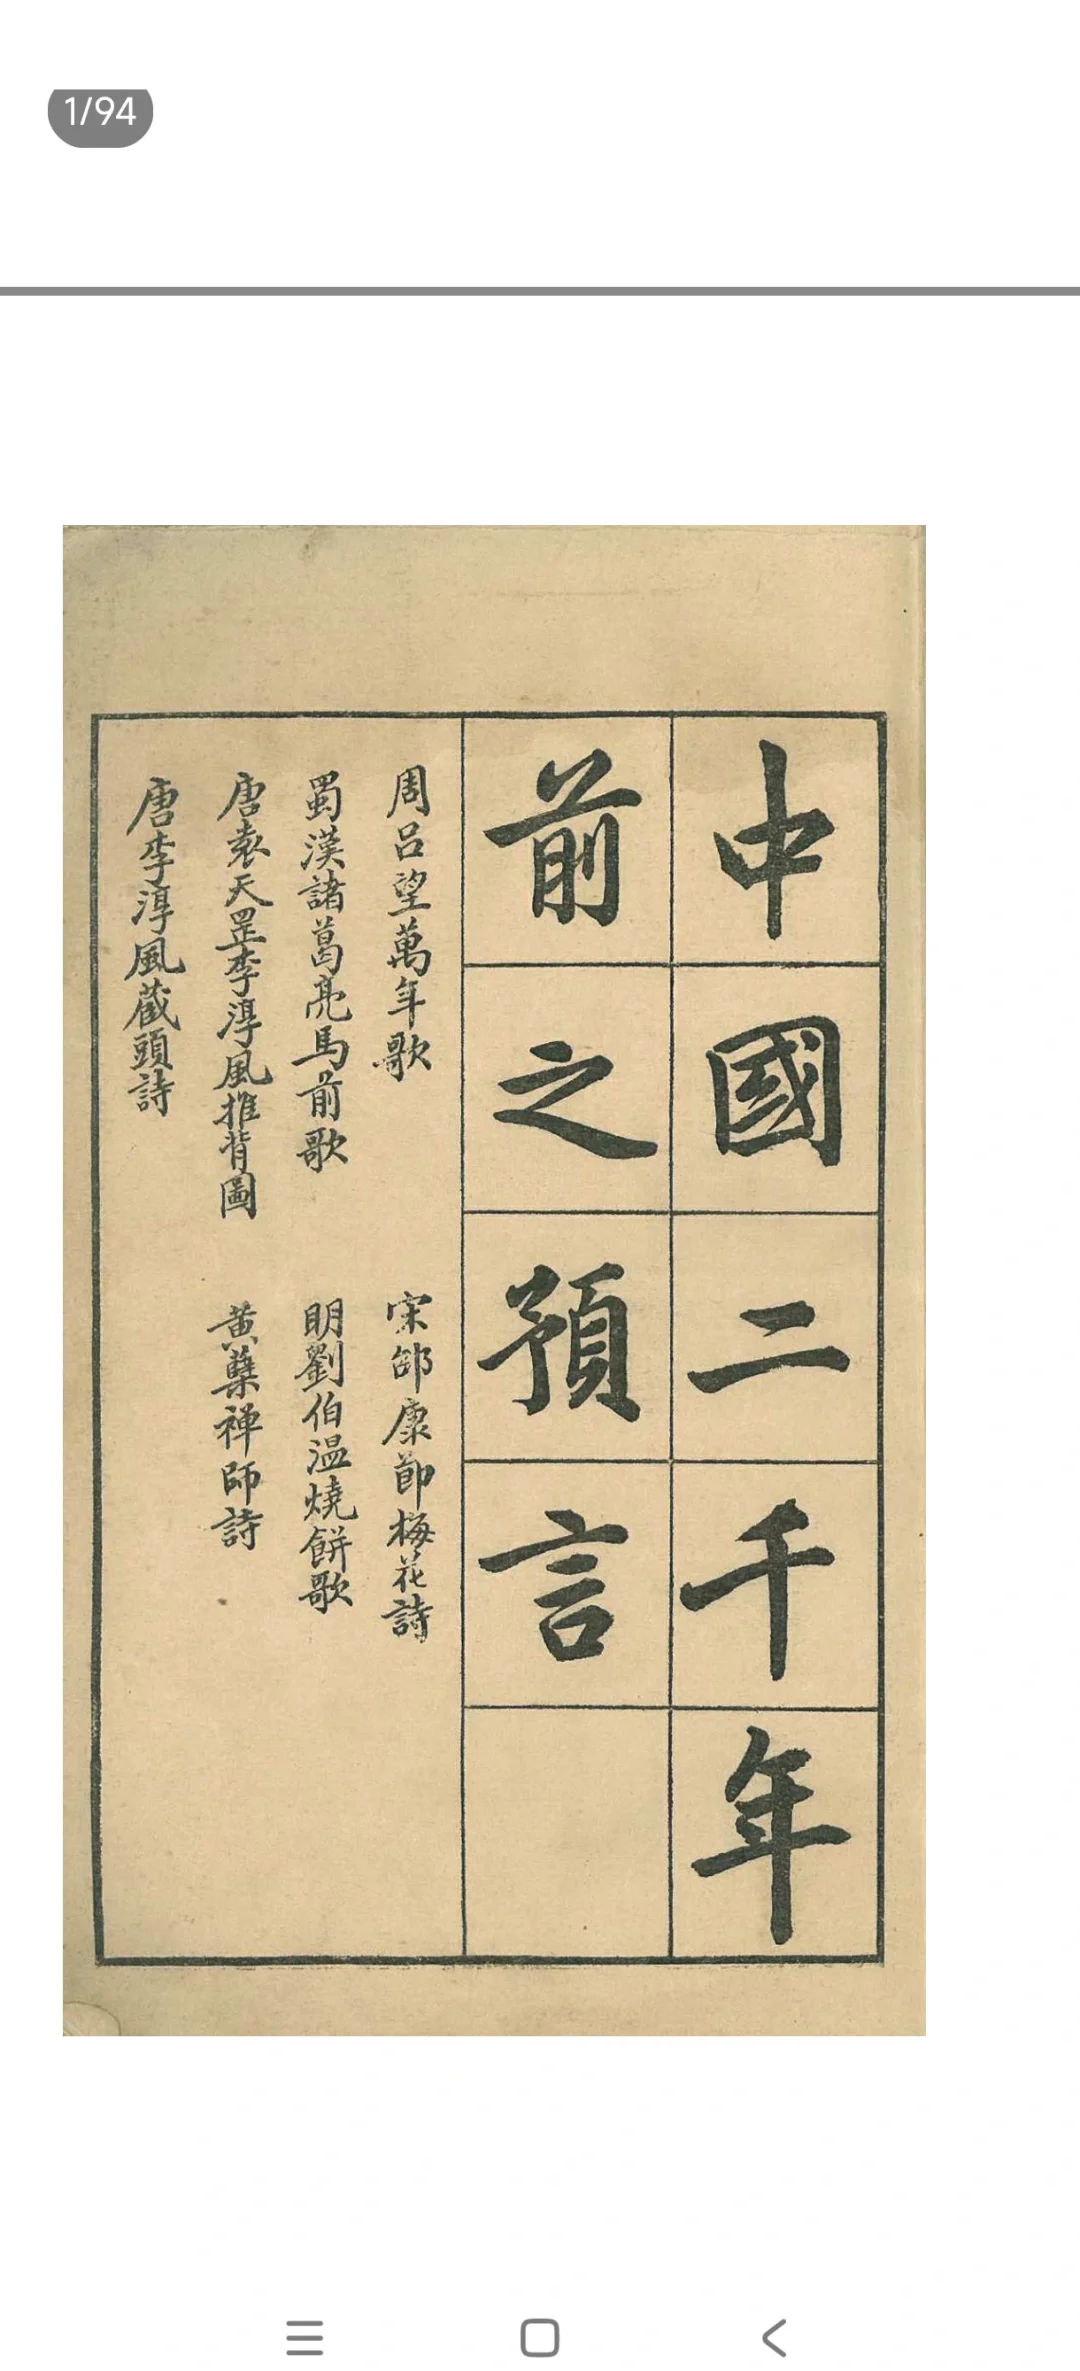 1/94
中國二千年
前之預言
周呂望萬年歌
宋邵康節梅花詩
蜀漢諸葛亮馬前歌
明劉伯溫燒餅歌
唐袁天罡李淳風推背圖
黃蘗禪師詩
唐李淳風藏頭詩